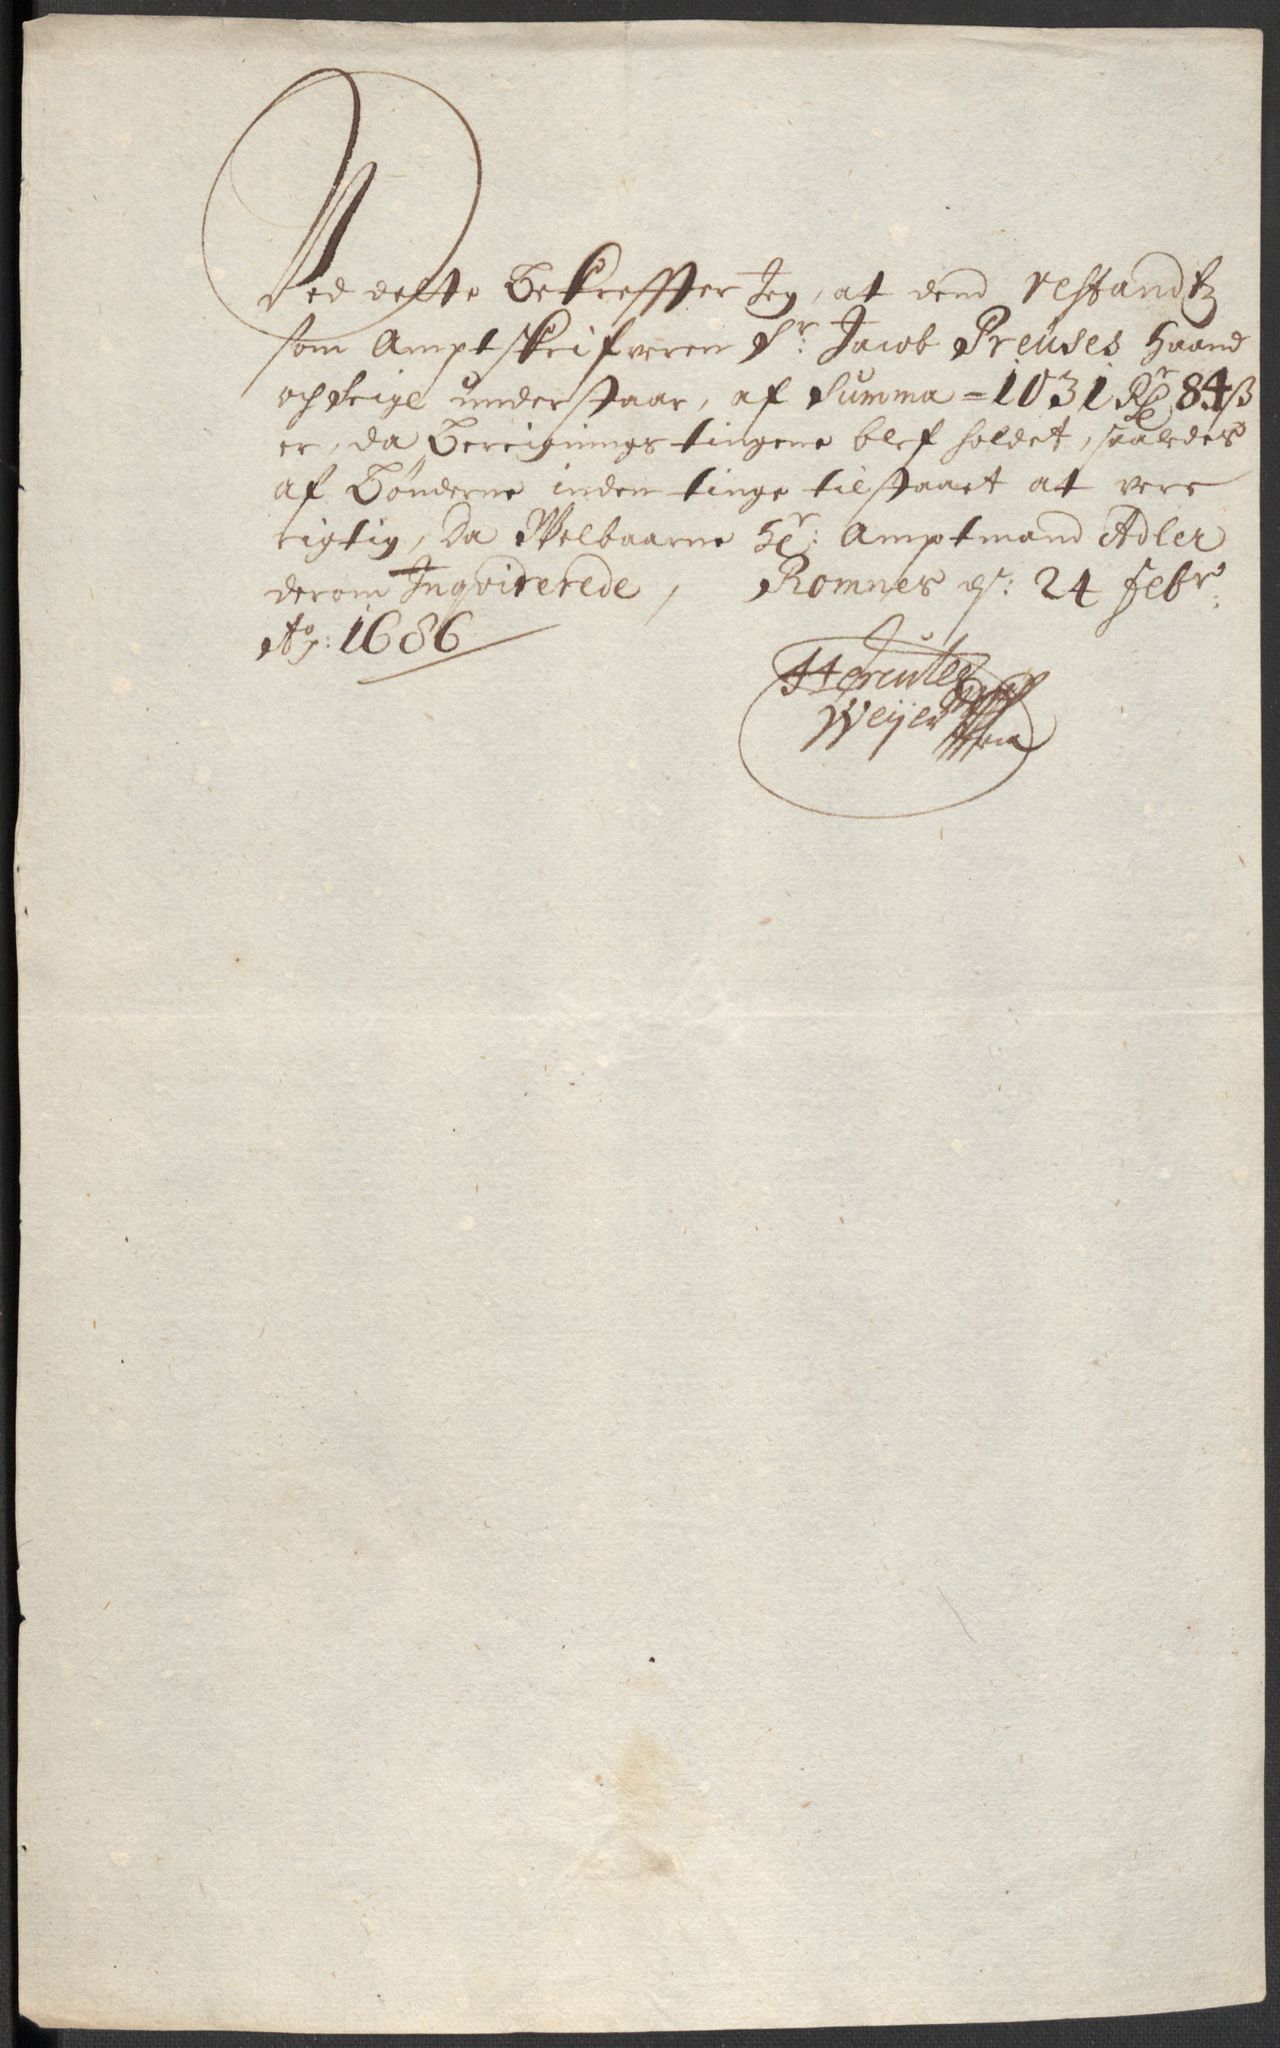 Ved dette Bekreffter Jeg, at dend restandtz
som Amptskrifveren Sr: Jacob Preuses Haand
och Seigl understaar, af Summa = 1031 Rdr 84 ß
er, da Bereignings tingene blef holdet, saaledes
af Bønderne inden tinge tilstaaet at vere
rigtig, Da Welbaarne Hr: Amptmand Adler
derom Inqvirerede, Romnes d: 24 Febr:
Ao: 1686
Hercules
Weÿer